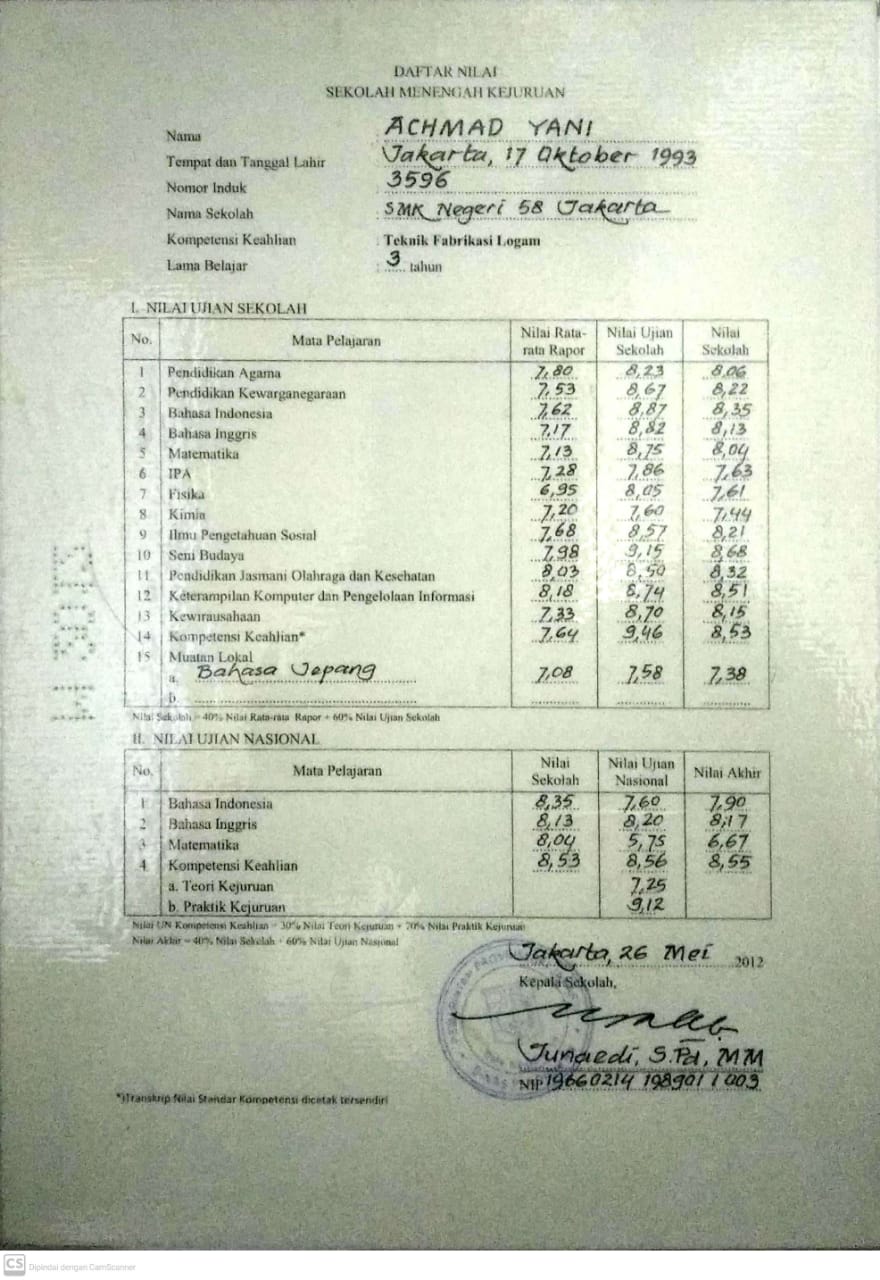 DAFTAR NILAI
SEKOLAH MENENGAH KEJURUAN
Nama : ACHMAD YANI
Tempat dan Tanggal Lahir : Jakarta, 17 Oktober 1993
Nomor Induk : 3596
Nama Sekolah : SMK Negeri 58 Jakarta
Kompetensi Keahlian : Teknik Fabrikasi Logam
Lama Belajar : 3 tahun
I. NILAI UJIAN SEKOLAH
No. Mata Pelajaran Nilai Rata-rata Rapor Nilai Ujian Sekolah Nilai Sekolah
1 Pendidikan Agama 7,80 8,23 8,06
2 Pendidikan Kewarganegaraan 7,53 8,67 8,22
3 Bahasa Indonesia 7,62 8,87 8,35
4 Bahasa Inggris 7,17 8,82 8,13
5 Matematika 7,13 8,75 8,04
6 IPA 7,28 7,86 7,63
7 Fisika 6,95 8,05 7,61
8 Kimia 7,20 7,60 7,44
9 Ilmu Pengetahuan Sosial 7,68 8,57 8,21
10 Seni Budaya 7,98 9,15 8,68
11 Pendidikan Jasmani Olahraga dan Kesehatan 8,03 8,50 8,32
12 Keterampilan Komputer dan Pengelolaan Informasi 8,18 8,74 8,51
13 Kewirausahaan 7,33 8,70 8,15
14 Kompetensi Keahlian* 7,64 9,46 8,53
15 Muatan Lokal
a. Bahasa Jepang 7,08 7,58 7,38
b.
Nilai Sekolah = 40% Nilai Rata-rata Rapor + 60% Nilai Ujian Sekolah
II. NILAI UJIAN NASIONAL
No. Mata Pelajaran Nilai Sekolah Nilai Ujian Nasional Nilai Akhir
1 Bahasa Indonesia 8,35 7,60 7,90
2 Bahasa Inggris 8,13 8,20 8,17
3 Matematika 8,04 5,75 6,67
4 Kompetensi Keahlian 8,53 8,56 8,55
a. Teori Kejuruan 7,25
b. Praktik Kejuruan 9,12
Nilai UN Kompetensi Keahlian = 30% Nilai Teori Kejuruan + 70% Nilai Praktik Kejuruan
Nilai Akhir = 40% Nilai Sekolah + 60% Nilai Ujian Nasional
Jakarta, 26 Mei 2012
Kepala Sekolah,
Junaedi, S.Pd, MM
NIP 19660214 198901 1 003
*)Transkrip Nilai Standar Kompetensi dicetak tersendiri
CS Dipindai dengan CamScanner